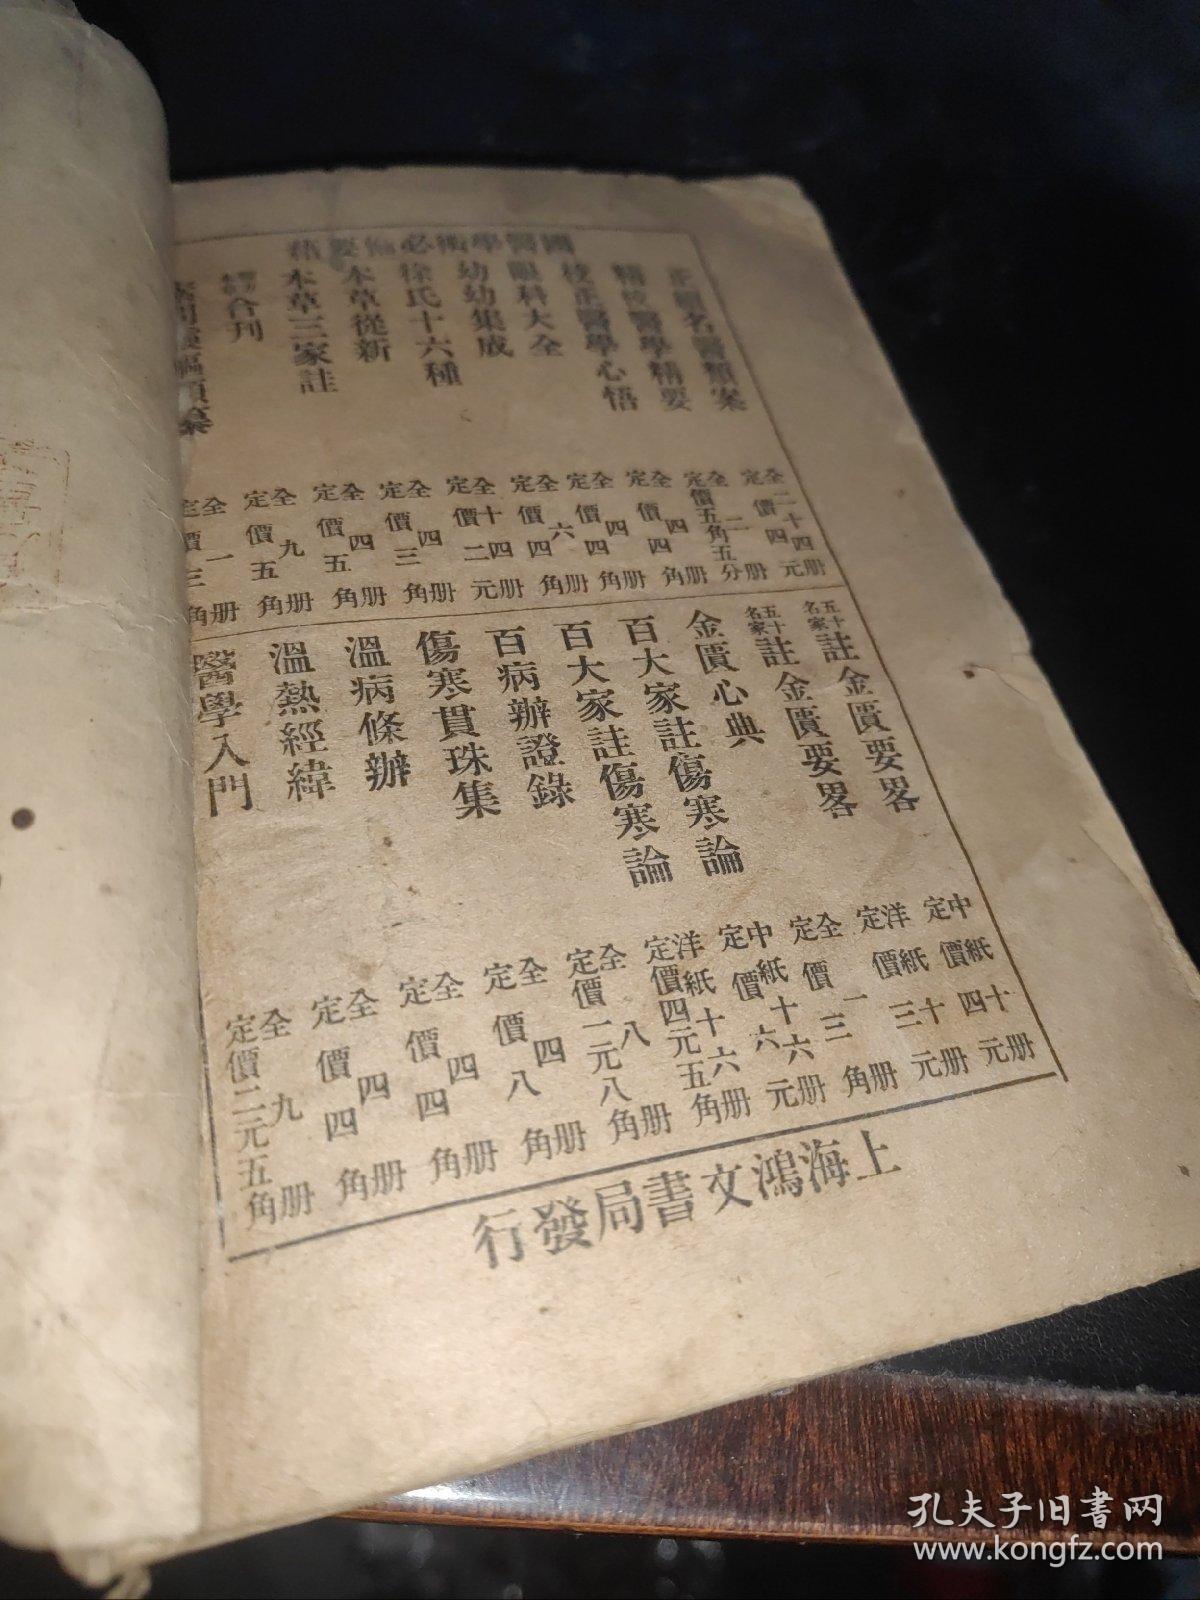 國醫學術必備要籍
正續名醫類案
全二十四册
定價四元
精校醫學精要
全二册
定價五角五分
校正醫學心悟
全四册
定價四角
眼科大全
全四册
定價四角
幼幼集成
全六册
定價四角
徐氏十六種
全十四册
定價二元
本草從新
全四册
定價三角
本草三家註
全四册
定價五角
合刊
全九册
定價五角
全一册
定價三角
五十名家註金匱要畧
中紙十册
定價四元
五十名家註金匱要畧
洋紙十册
定價三元
金匱心典
全一册
定價三角
百大家註傷寒論
中紙十六册
定價六元
百大家註傷寒論
洋紙十六册
定價四元五角
百病辦證錄
全八册
定價一元八角
傷寒貫珠集
全四册
定價八角
溫病條辦
全四册
定價四角
溫熱經緯
全四册
定價四角
醫學入門
全九册
定價二元五角
上海鴻文書局發行
孔夫子旧书网
www.kongfz.com